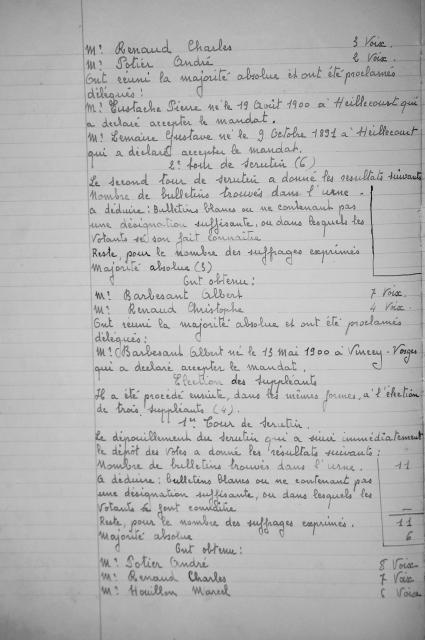 Mr. Renaud Charles 3 Voix.
Mr. Potier André 2 Voix.
Ont réuni la majorité absolue et ont été proclamés
délégués :
Mr. Eustache Pierre né le 19 Août 1900 à Heillecourt qui
a déclaré accepter le mandat.
Mr. Lemaire Gustave né le 9 Octobre 1891 à Heillecourt
qui a déclaré accepter le mandat.
2e tour de scrutin (6)
Le second tour de scrutin a donné les résultats suivants
Nombre de bulletins trouvés dans l'urne.
A déduire : Bulletins blancs ou ne contenant pas
une désignation suffisante, ou dans lesquels les
Votants se son fait connaître
Reste, pour le nombre des suffrages exprimés
Majorité absolue (3)
Ont obtenu :
Mr. Barbesant Albert 7 Voix.
Mr. Renaud Christophe 4 Voix.
Ont réuni la majorité absolue et ont été proclamés
délégués :
Mr. Barbesant Albert né le 13 Mai 1900 à Vincey-Vosges
qui a déclaré accepter le mandat.
Election des suppléants
Il a été procédé ensuite, dans les mêmes formes, à l'élection
de trois suppléants (4).
1er Tour de scrutin.
Le dépouillement du scrutin qui a suivi immédiatement
le dépôt des votes a donné les résultats suivants :
Nombre de bulletins trouvés dans l'urne. 11
A déduire : bulletins blancs ou ne contenant pas
une désignation suffisante, ou dans lesquels les
Votants se font connaître —
Reste, pour le nombre des suffrages exprimés. 11
Majorité absolue 6
Ont obtenu :
Mr. Potier André 8 Voix
Mr. Renaud Charles 7 Voix
Mr. Houillon Marcel 6 Voix